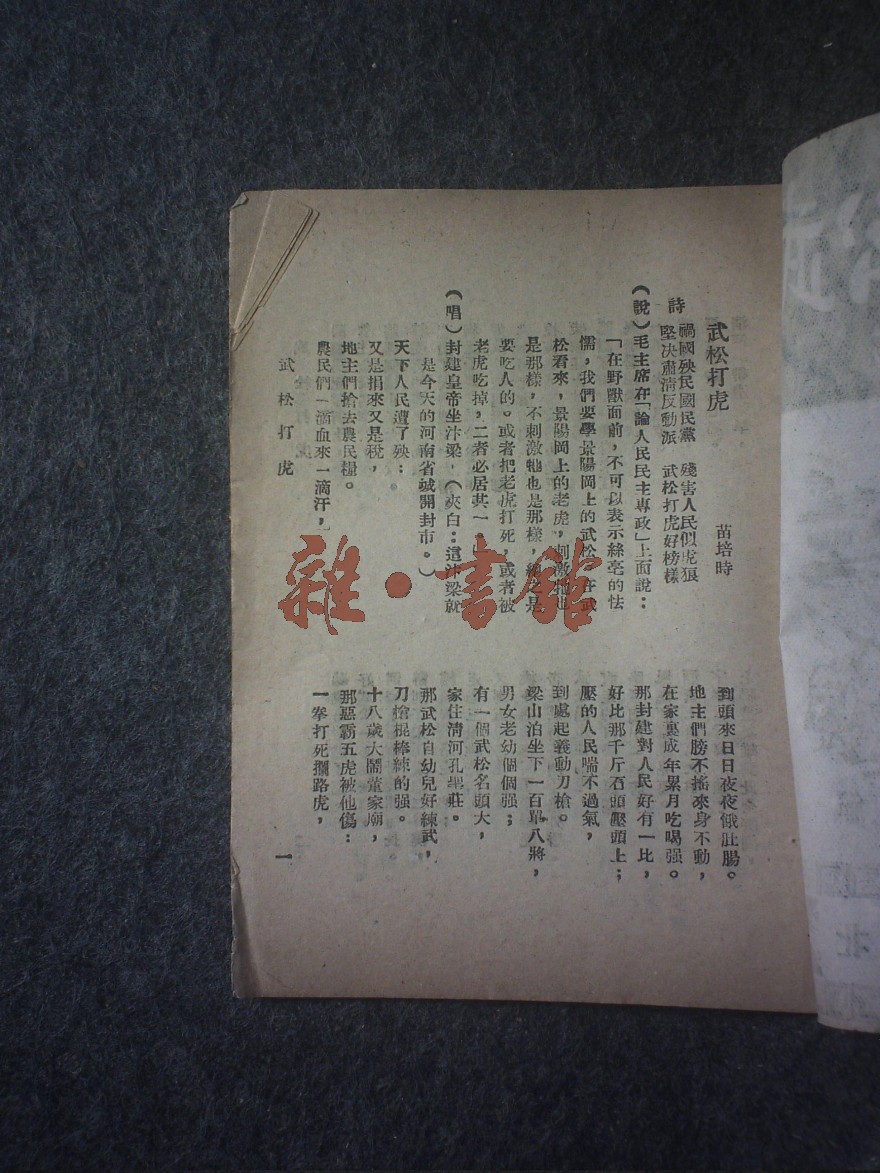 武松打虎
苗培時
詩
禍國殃民國民黨　殘害人民似虎狼
堅决肅清反動派　武松打虎好榜樣
(說)毛主席在「論人民民主專政」上面說：
「在野獸面前，不可以表示絲毫的怯
懦，我們要學景陽岡上的武松。在武
松看來，景陽岡上的老虎，刺激牠也
是那樣，不刺激牠也是那樣，總之是
要吃人的。或者把老虎打死，或者被
老虎吃掉，二者必居其一。
(唱)封建皇帝坐汴梁，(夾白：這汴梁就
是今天的河南省城開封市。)
天下人民遭了殃：
又是捐來又是稅，
地主們搶去農民糧。
農民們一滴血來一滴汗，
到頭來日日夜夜餓肚腸。
地主們膀不搖來身不動，
在家裏成年累月吃喝强。
那封建對人民好有一比，
好比那千斤石頭壓頭上；
壓的人民喘不過氣，
到處起義動刀槍。
梁山泊坐下一百單八將，
男女老幼個個强；
有一個武松名頭大，
家住清河孔聖莊。
那武松自幼兒好練武，
刀槍棍棒練的强。
十八歲大鬧董家廟，
那惡霸五虎被他傷：
一拳打死攔路虎，
武松打虎
一
雜·書館
北